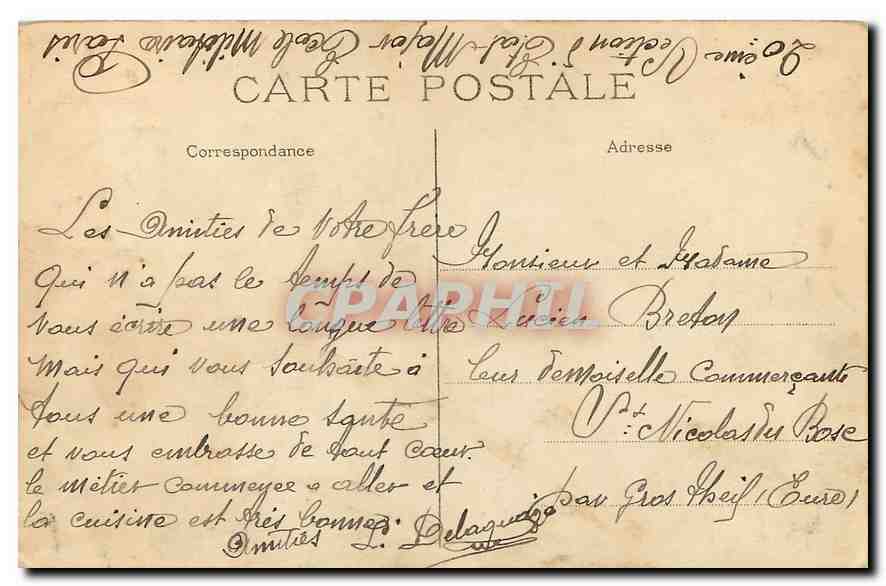 20ème Section d'Etat-Major Ecole Militaire Paris
CARTE POSTALE
Correspondance
Adresse
Les Amitiés de Votre frère
Qui n'a pas le temps de
vous écrire une longue lettre
Mais qui vous souhaite à
tous une bonne santé
et vous embrasse de tout cœur.
le métier commence a aller et
la cuisine est très bonne
Amitiés
Monsieur et Madame
Lucien Breton
leur demoiselle Commerçante
St Nicolas du Bosc
par Gros theil (Eure)
CPAPHIL